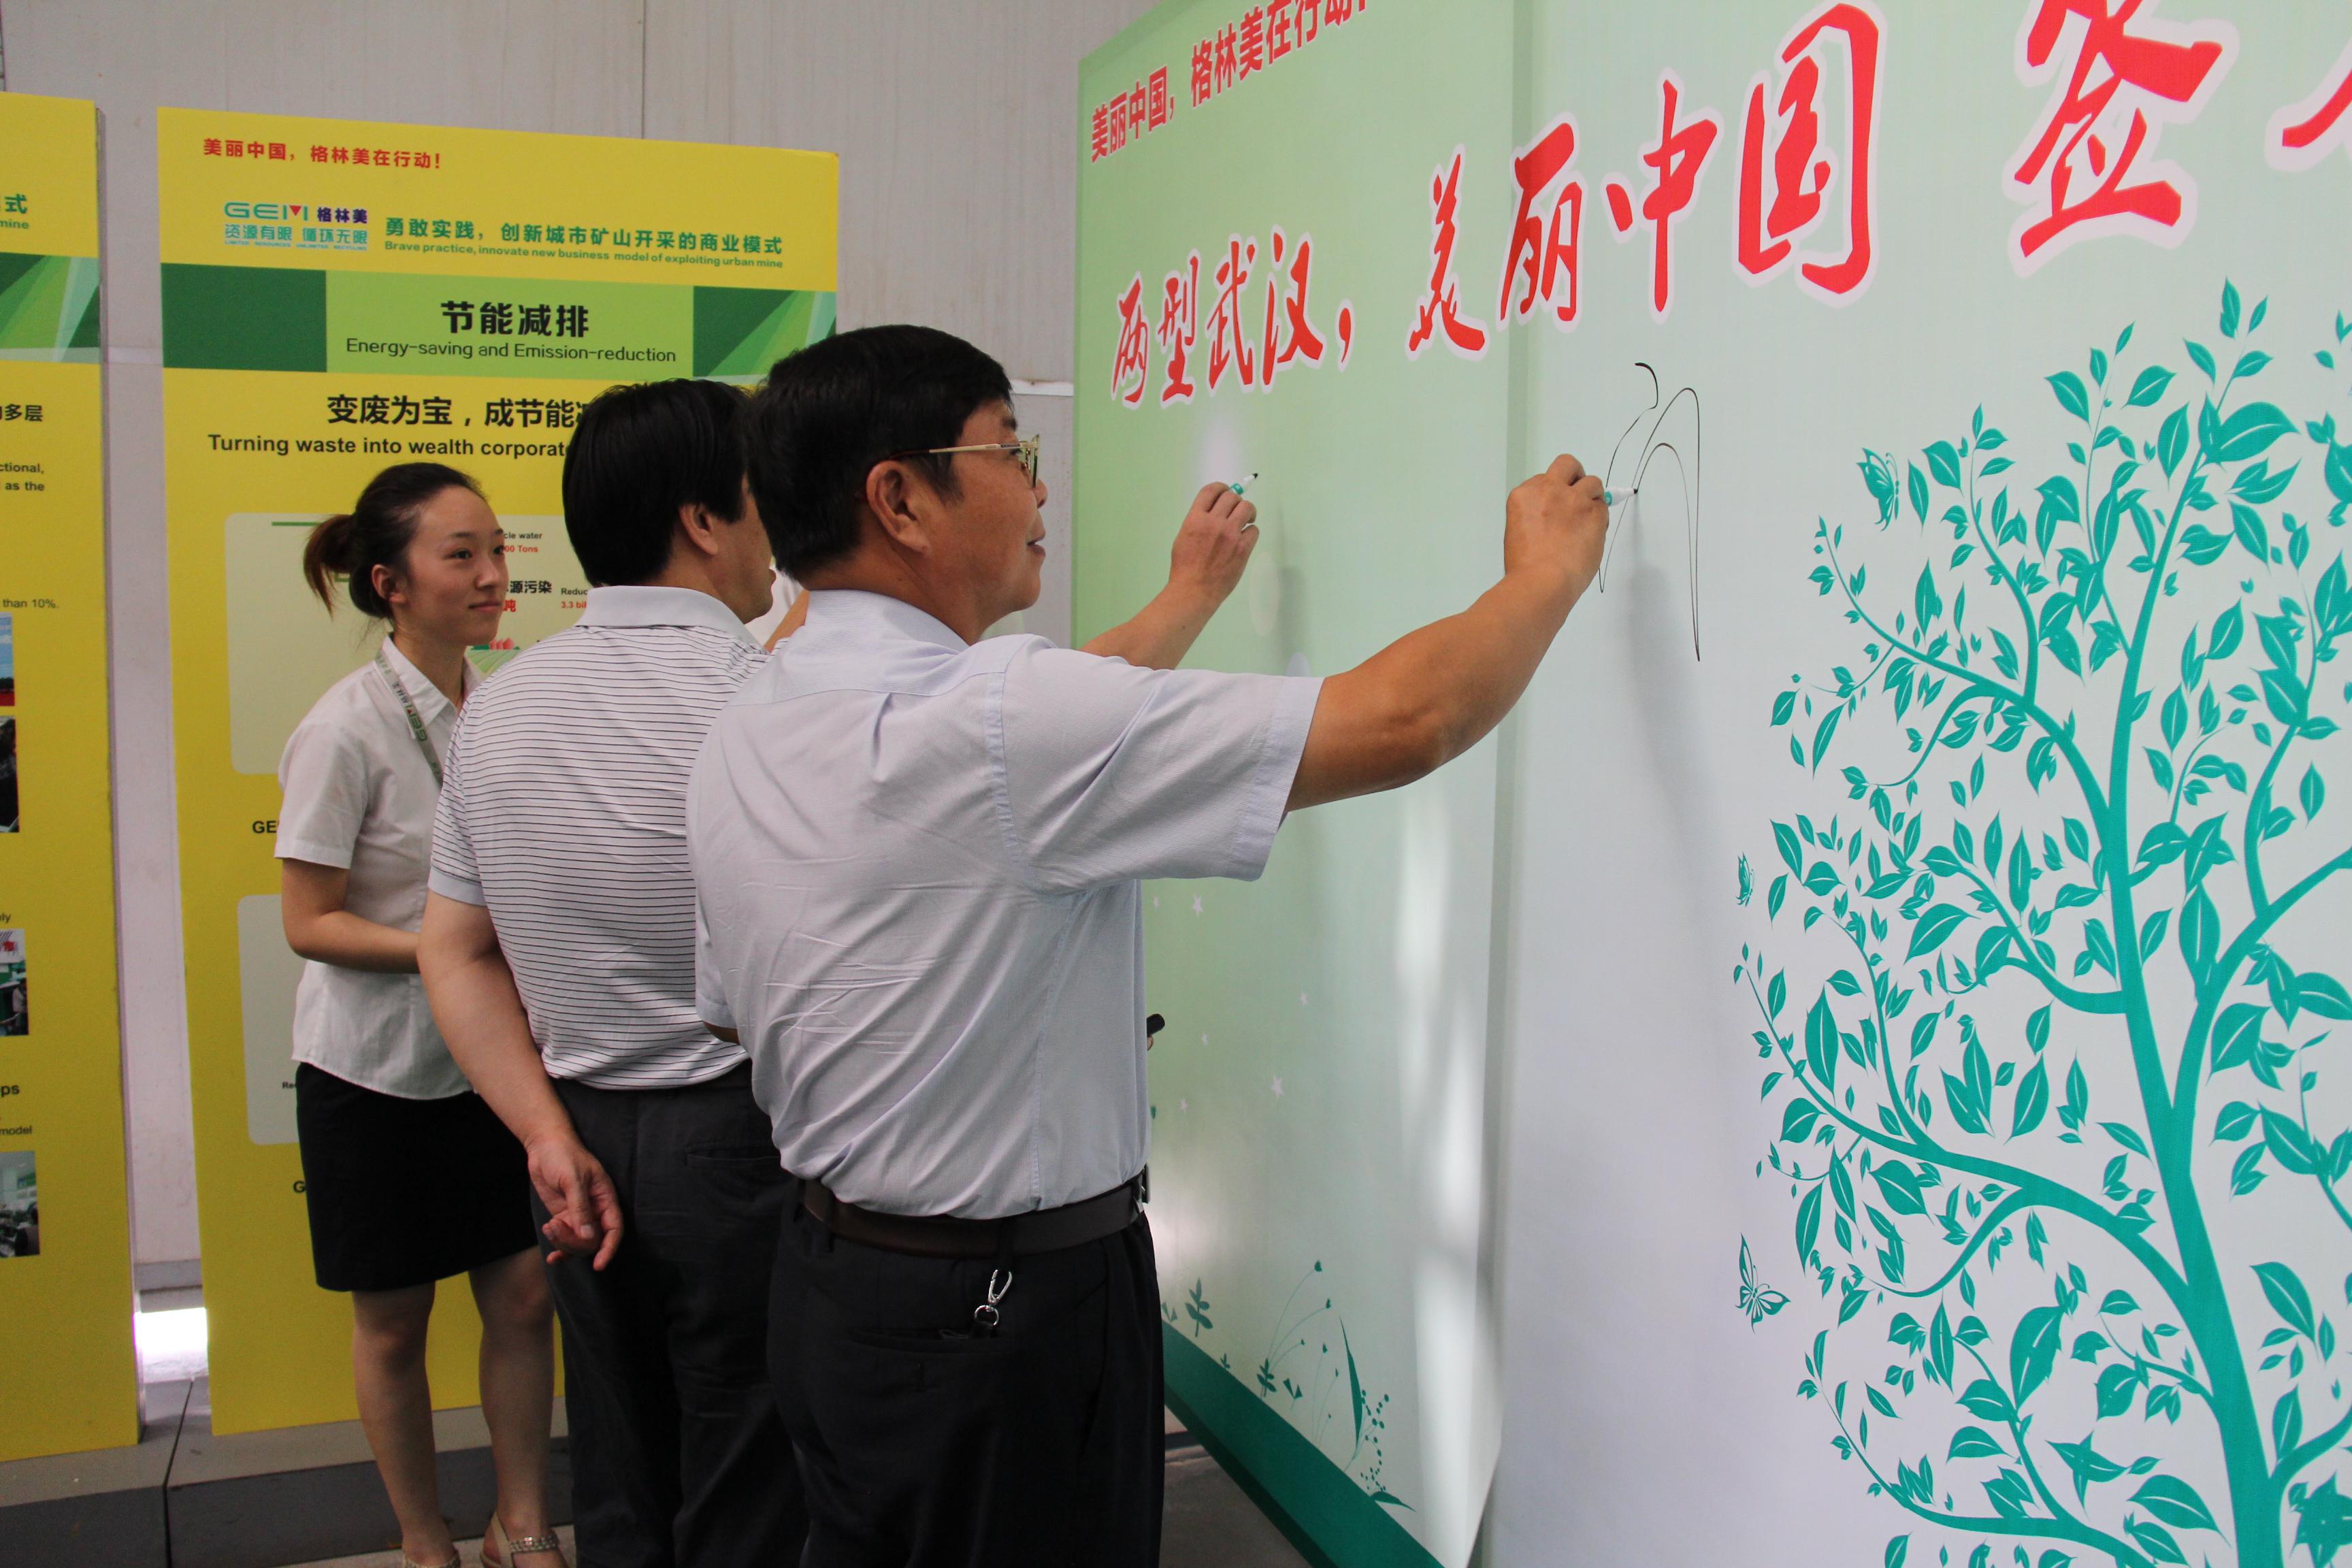 式
mine
多层
ctional,
as the
than 10%.
ely
ps
model
美丽中国，格林美在行动！
GEM 格林美
资源有限 循环无限
LIMITED RESOURCES UNLIMITED RECYCLING
勇敢实践，创新城市矿山开采的商业模式
Brave practice, innovate new business model of exploiting urban mine
节能减排
Energy-saving and Emission-reduction
变废为宝，成节能
Turning waste into wealth corporate
cle water
00 Tons
源污染
Reduc
吨
3.3 bil
GE
Re
G
GEM
美丽中国，格林美在行动！
两型武汉，美丽中国 签